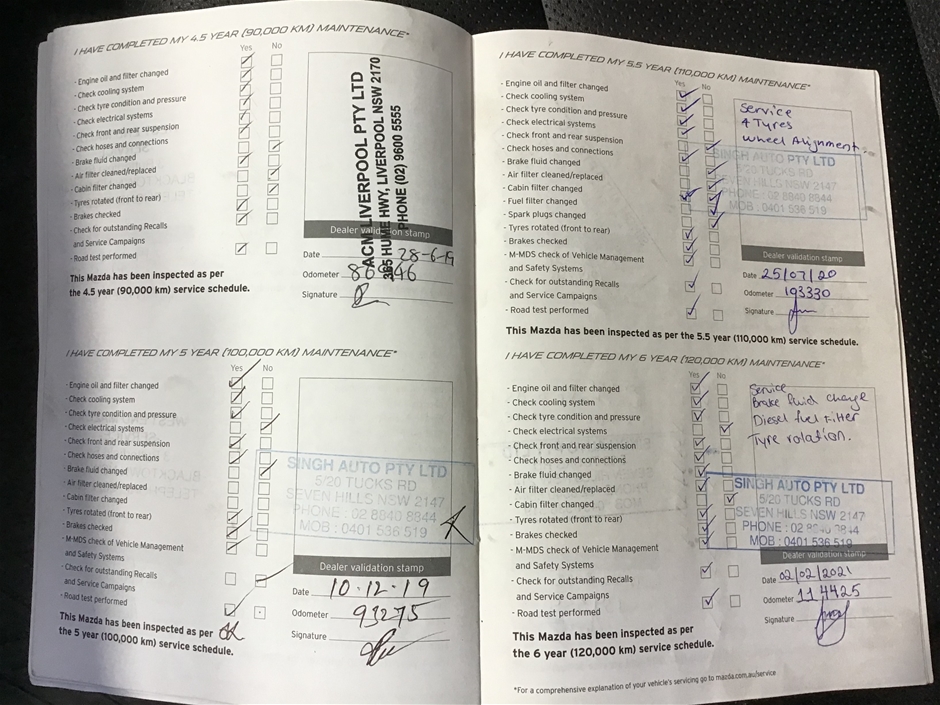 I HAVE COMPLETED MY 4.5 YEAR (90,000 KM) MAINTENANCE*
Yes No
- Engine oil and filter changed
- Check cooling system
- Check tyre condition and pressure
- Check electrical systems
- Check front and rear suspension
- Check hoses and connections
- Brake fluid changed
- Air filter cleaned/replaced
- Cabin filter changed
- Tyres rotated (front to rear)
- Brakes checked
- Check for outstanding Recalls
and Service Campaigns
- Road test performed
This Mazda has been inspected as per
the 4.5 year (90,000 km) service schedule.
ACM LIVERPOOL PTY LTD
365 HUME HWY, LIVERPOOL NSW 2170
PHONE (02) 9600 5555
Dealer validation stamp
Date 28-6-19
Odometer
Signature
I HAVE COMPLETED MY 5 YEAR (100,000 KM) MAINTENANCE*
Yes No
- Engine oil and filter changed
- Check cooling system
- Check tyre condition and pressure
- Check electrical systems
- Check front and rear suspension
- Check hoses and connections
- Brake fluid changed
- Air filter cleaned/replaced
- Cabin filter changed
- Tyres rotated (front to rear)
- Brakes checked
- M-MDS check of Vehicle Management
and Safety Systems
- Check for outstanding Recalls
and Service Campaigns
- Road test performed
This Mazda has been inspected as per
the 5 year (100,000 km) service schedule.
SINGH AUTO PTY LTD
5/20 TUCKS RD
SEVEN HILLS NSW 2147
PHONE : 02 8840 8844
MOB : 0401 536 519
Dealer validation stamp
Date 10.12.19
Odometer 93275
Signature
I HAVE COMPLETED MY 5.5 YEAR (110,000 KM) MAINTENANCE*
Yes No
- Engine oil and filter changed
- Check cooling system
- Check tyre condition and pressure
- Check electrical systems
- Check front and rear suspension
- Check hoses and connections
- Brake fluid changed
- Air filter cleaned/replaced
- Cabin filter changed
- Fuel filter changed
- Spark plugs changed
- Tyres rotated (front to rear)
- Brakes checked
- M-MDS check of Vehicle Management
and Safety Systems
- Check for outstanding Recalls
and Service Campaigns
- Road test performed
Service
4 Tyres
Wheel Alignment
SINGH AUTO PTY LTD
5/20 TUCKS RD
SEVEN HILLS NSW 2147
PHONE : 02 8840 8844
MOB : 0401 536 519
Dealer validation stamp
Date 25/07/20
Odometer 193330
Signature
This Mazda has been inspected as per the 5.5 year (110,000 km) service schedule.
I HAVE COMPLETED MY 6 YEAR (120,000 KM) MAINTENANCE*
Yes No
- Engine oil and filter changed
- Check cooling system
- Check tyre condition and pressure
- Check electrical systems
- Check front and rear suspension
- Check hoses and connections
- Brake fluid changed
- Air filter cleaned/replaced
- Cabin filter changed
- Tyres rotated (front to rear)
- Brakes checked
- M-MDS check of Vehicle Management
and Safety Systems
- Check for outstanding Recalls
and Service Campaigns
- Road test performed
Service
Brake fluid change
Diesel fuel Filter
Tyre rotation.
SINGH AUTO PTY LTD
5/20 TUCKS RD
SEVEN HILLS NSW 2147
PHONE : 02
MOB : 0401 536 519
Dealer validation stamp
Date 02/02/2021
Odometer 114425
Signature
This Mazda has been inspected as per
the 6 year (120,000 km) service schedule.
*For a comprehensive explanation of your vehicle's servicing go to mazda.com.au/service